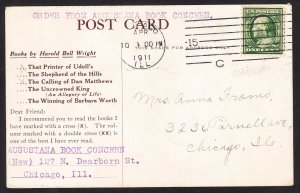 ORDER FROM AUGUSTANA BOOK CONCERN,
POST CARD
APR
10 1 00 PM
1911
ILL
15
C
Books by Harold Bell Wright
....That Printer of Udell's
....The Shepherd of the Hills
....The Calling of Dan Matthews
....The Uncrowned King
(An Allegory of Life)
....The Winning of Barbara Worth
Dear Friend:
I recommend you to read the books I
have marked with a cross (X). The vol-
ume marked with a double cross (XX) is
one of the best I have ever read.
AUGUSTANA BOOK CONCERN
New) 127 N. Dearborn St.
Chicago, Ill.
Mrs. Anna Frans,
3236 Parnell ave,
Chicago, Ill